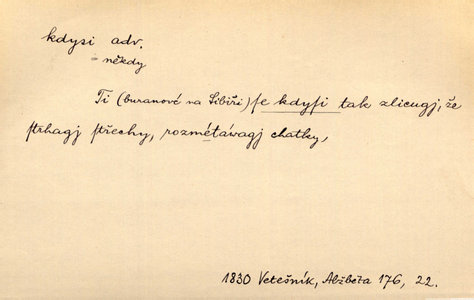 kdysi adv.
= někdy
Ti (buranové na Sibiři) se kdysi tak zlicugj, že
strhagj střechy, rozmétáwagj chatky,
1830 Vetešník, Alžběta 176, 22.